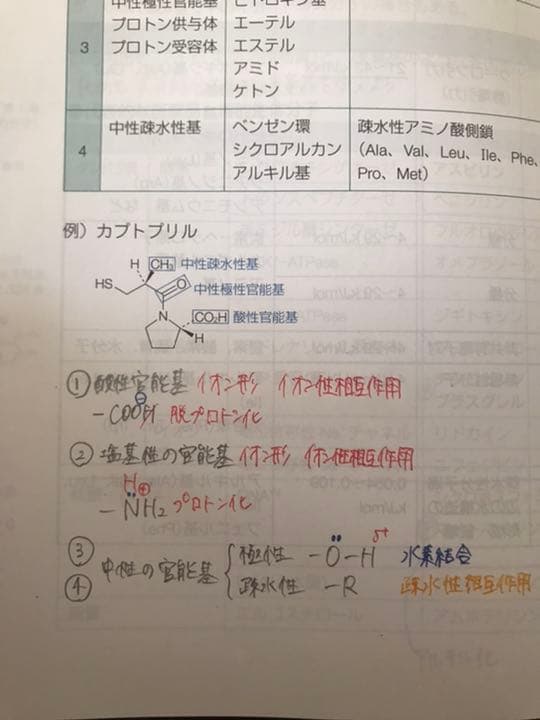 中性極性官能基
プロトン供与体
プロトン受容体
3
ヒドロキシ基
エーテル
エステル
アミド
ケトン
4
中性疎水性基
ベンゼン環
シクロアルカン
アルキル基
疎水性アミノ酸側鎖
(Ala、Val、Leu、Ile、Phe、
Pro、Met)
例)カプトプリル
H CH₃ 中性疎水性基
HS O 中性極性官能基
N CO₂H 酸性官能基
H
① 酸性官能基 イオン形 イオン性相互作用
-COOH 脱プロトン化
② 塩基性の官能基 イオン形 イオン性相互作用
H⊕
-N̈H₂ プロトン化
③ 中性の官能基 極性 -Ö-H δ+ 水素結合
④ 疎水性 -R 疎水性相互作用